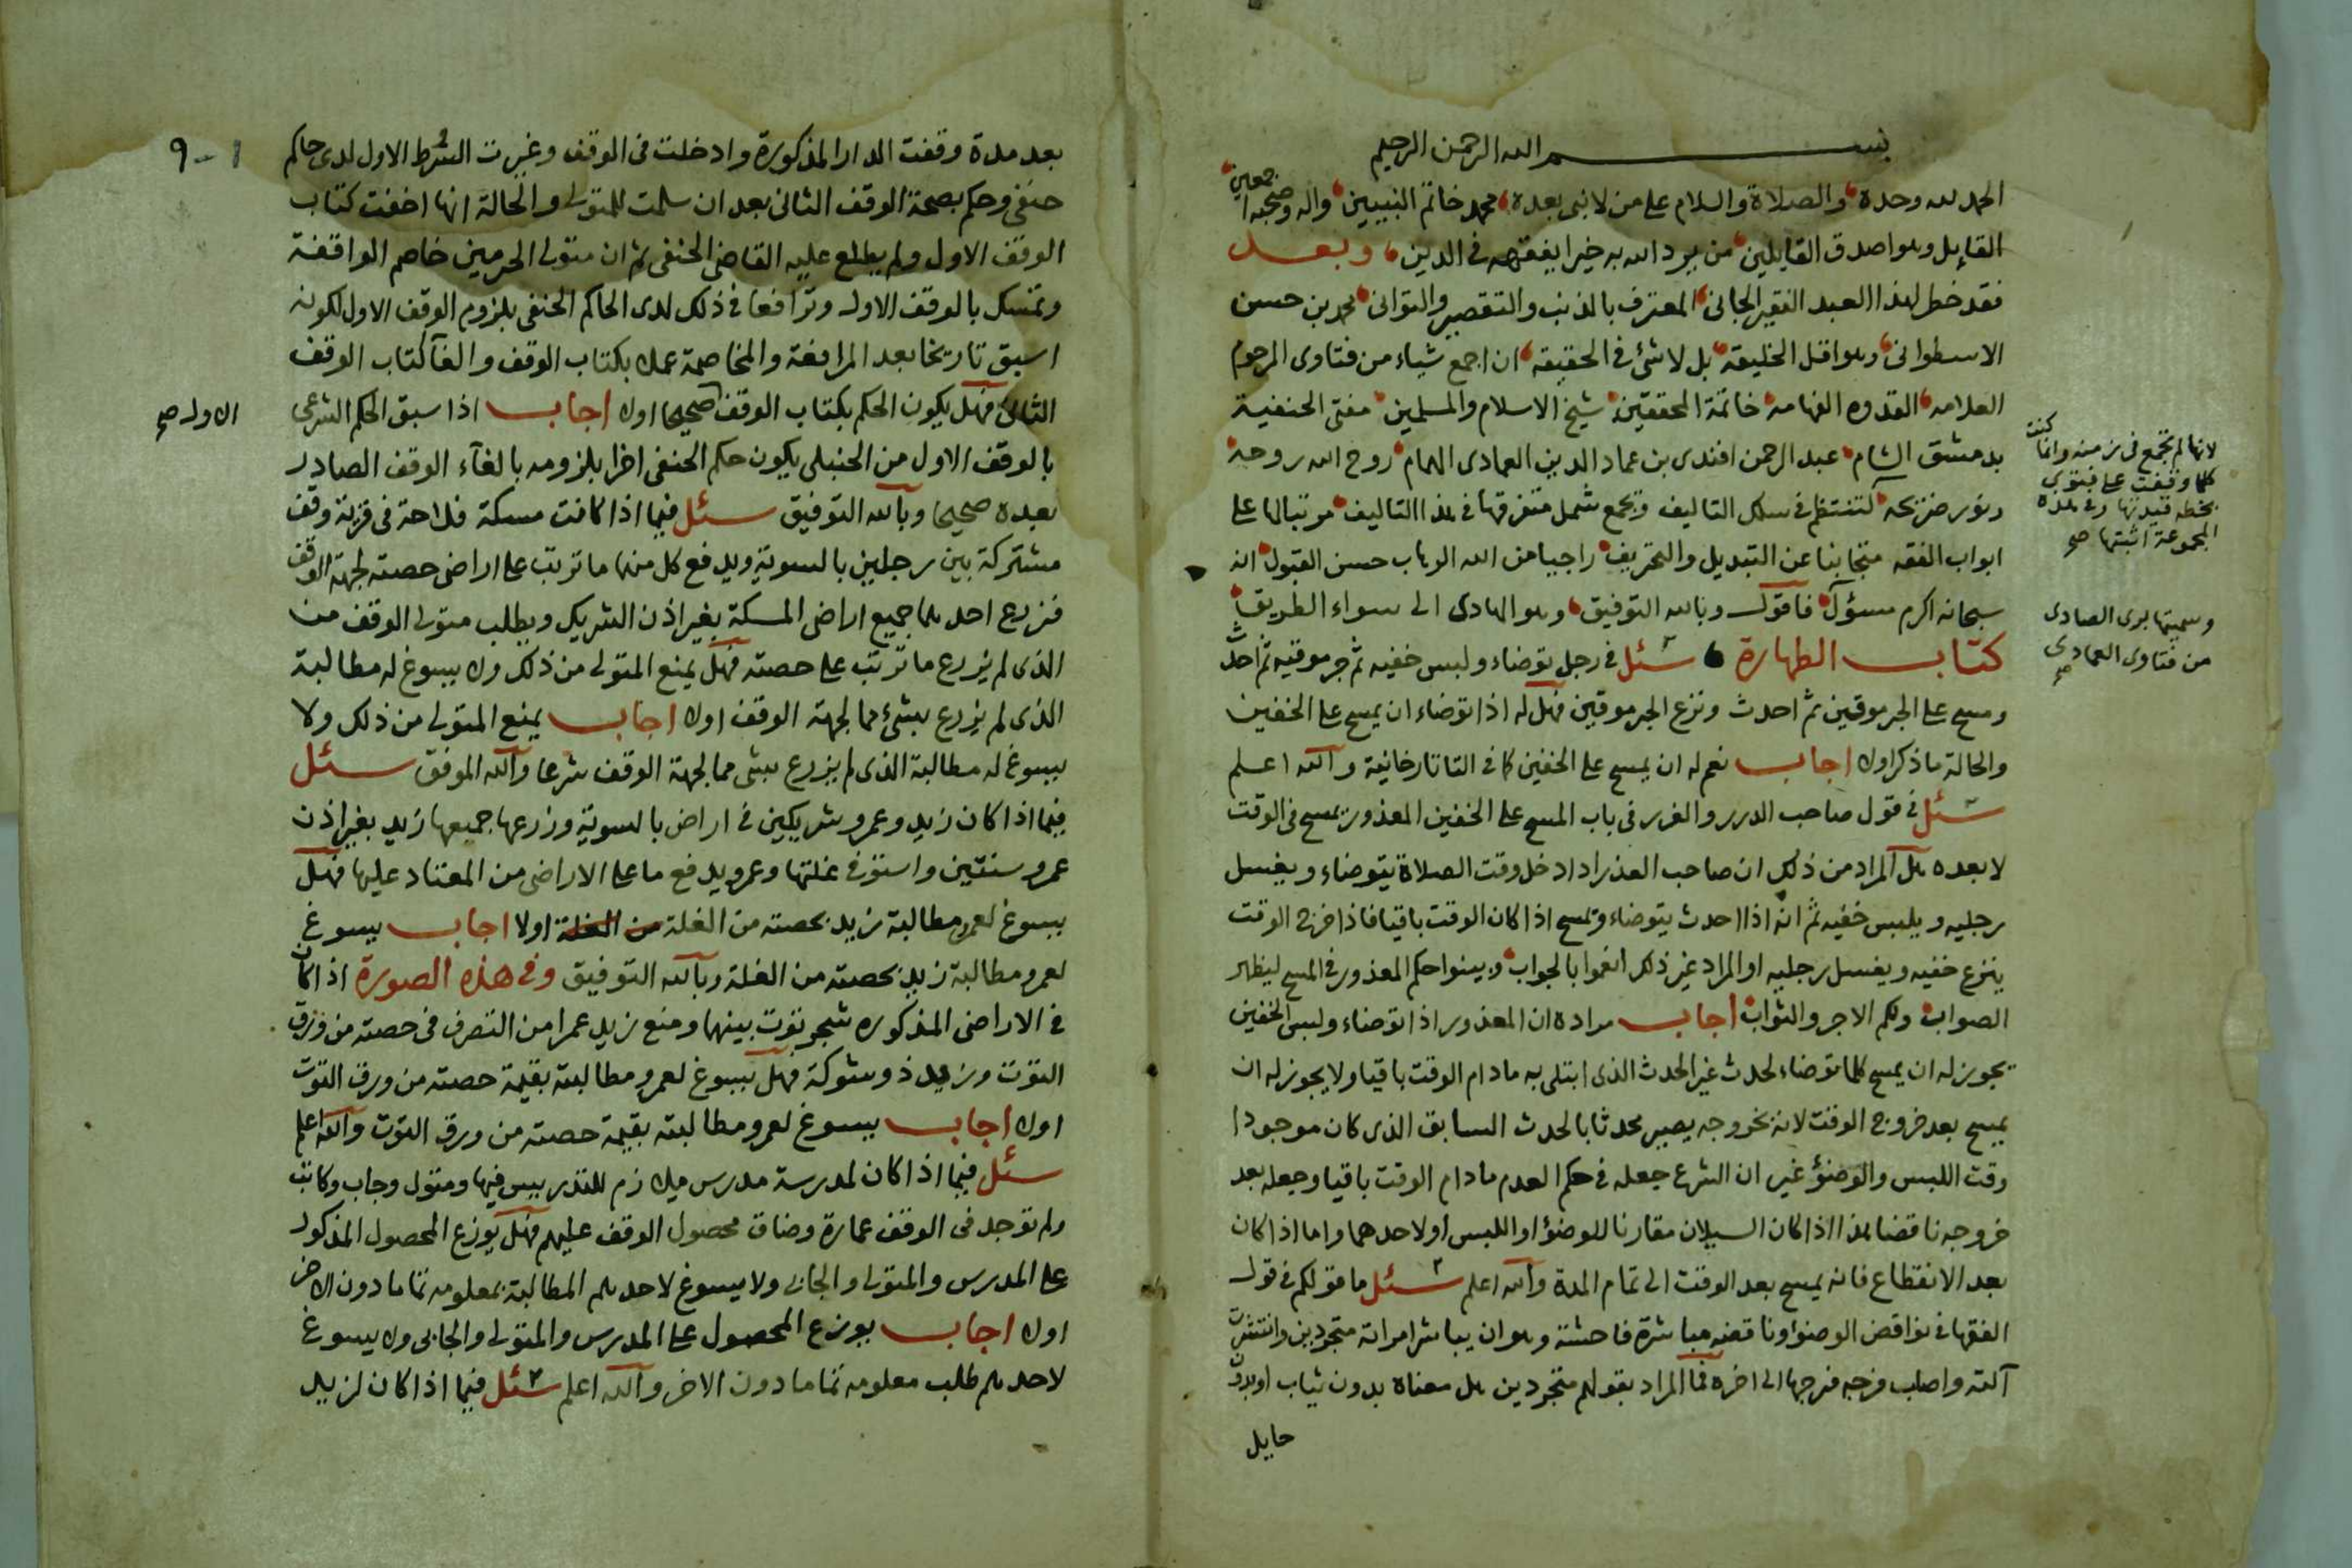 بسم الله الرحمن الرحيم
الحمد لله وحده والصلاة والسلام على من لا نبي بعده محمد خاتم النبيين واله وصحبه اجمعين
القايل وهو اصدق القايلين من يرد الله به خيرا يفقهه في الدين وبعد
فقد خطر لهذا العبد الفقير الجانى المعترف بالذنب والتقصير والتوانى محمد بن حسن
الاسطوانى وهو اقل الخليقة بل لا شئ في الحقيقة ان اجمع شياء من فتاوى المرحوم
العلامه القدوه الفهامه خاتمة المحققين شيخ الاسلام والمسلمين مفتى الحنفية
بدمشق الشام عبد الرحمن افندى بن عماد الدين العمادى الهمام روح الله روحه
ونور ضريحه لتنتظم في سلك التاليف ويجمع شمل متفرقها في هذا التاليف مرتبا لها على
ابواب الفقه متجانبا عن التبديل والتحريف راجيا من الله الوهاب حسن القبول انه
سبحانه اكرم مسؤل فاقول وبالله التوفيق وهو الهادى الى سواء الطريق
كتاب الطهارة سئل في رجل توضاء ولبس خفيه ثم جرموقيه ثم احدث
ومسح على الجرموقين ثم احدث ونزع الجرموقين فهل له اذا توضاء ان يمسح على الخفين
والحالة ماذكر اولا اجاب نعم له ان يمسح على الخفين كما في التاتارخانية والله اعلم
سئل في قول صاحب الدرر والغرر في باب المسح على الخفين المعذور يمسح في الوقت
لا بعده هل المراد من ذلك ان صاحب العذر اذا دخل وقت الصلاة يتوضاء ويغسل
رجليه ويلبس خفيه ثم انه اذا احدث يتوضاء ويمسح اذا كان الوقت باقيا فاذا خرج الوقت
ينزع خفيه ويغسل رجليه او المراد غير ذلك انعموا بالجواب وبينوا حكم المعذور في المسح ليظهر
الصواب ولكم الاجر والثواب اجاب مراده ان المعذور اذا توضاء ولبس الخفين
يجوز له ان يمسح كلما توضاء لحدث غير الحدث الذى ابتلى به مادام الوقت باقيا ولا يجوز له ان
يمسح بعد خروج الوقت لانه بخروجه يصير محدثا بالحدث السابق الذى كان موجودا
وقت اللبس والوضؤ غير ان الشرع جعله في حكم العدم مادام الوقت باقيا وجعله بعد
خروجه ناقضا هذا اذا كان السيلان مقارنا للوضؤ او اللبس او لاحدهما واما اذا كان
بعد الانقطاع فانه يمسح بعد الوقت الى تمام المدة والله اعلم سئل ما قولكم في قول
الفقها في نواقض الوضؤ وناقضه مباشرة فاحشة وهو ان يباشر امراته متجردين وانتشرت
آلته واصاب فرجه فرجها الى اخره فما المراد بقولهم متجردين هل معناه بدون ثياب او بدون
حايل
لانها لم تجمع في زمنه وانما كنت
كلما وقفت على فتوى
بخطه قيدتها وفى هذه
المجموعة اثبتها صح
وسميتها برى الصادى
من فتاوى العمادى
صح
بعد مدة وقفت الدار المذكورة وادخلت في الوقف وغيرت الشرط الاول لدى حاكم
حنفى وحكم بصحة الوقف الثانى بعد ان سلمت للمتولى والحالة انها اخفت كتاب
الوقف الاول ولم يطلع عليه القاضى الحنفى ثم ان متولى الحرمين خاصم الواقفة
وتمسك بالوقف الاول وترافعا في ذلك لدى الحاكم الحنفى بلزوم الوقف الاول لكونه
اسبق تاريخا بعد المرافعة والمخاصمة عملا بكتاب الوقف والغآ كتاب الوقف
الثانى فهل يكون الحكم بكتاب الوقف صحيحا اولا اجاب اذا سبق الحكم الشرعى
بالوقف الاول من الحنبلى يكون حكم الحنفى اخرا بلزومه بالغآء الوقف الصادر
بعده صحيحا وبالله التوفيق سئل فيما اذا كانت مسكة فلاحة في قرية وقف
مشتركة بين رجلين بالسوية ويدفع كل منهما ما ترتب على اراضى حصته لجهة الوقف
فزرع احدهما جميع اراضى المسكة بغير اذن الشريك ويطلب متولى الوقف من
الذى لم يزرع ما ترتب على حصته فهل يمنع المتولى من ذلك ولا يسوغ له مطالبة
الذى لم يزرع بشئ مما لجهة الوقف اولا اجاب يمنع المتولى من ذلك ولا
يسوغ له مطالبة الذى لم يزرع بشى مما لجهة الوقف شرعا والله الموفق سئل
فيما اذا كان زيد وعمرو شريكين في اراض بالسوية وزرعها جميعها زيد بغير اذن
عمرو سنتين واستوفى غلتها وعمرو يدفع ما على الاراضى من المعتاد عليها فهل
يسوغ لعمرو مطالبة زيد بحصته من الغلة من الغلة اولا اجاب يسوغ
لعمرو مطالبة زيد بحصته من الغلة وبالله التوفيق وفي هذه الصورة اذا كان
في الاراضى المذكوره شجر توت بينهما ومنع زيد عمرا من التصرف في حصته من ورق
التوت وزيد ذو شوكة فهل يسوغ لعمرو مطالبته بقيمة حصته من ورق التوت
اولا اجاب يسوغ لعمرو مطالبته بقيمة حصته من ورق التوت والله اعلم
سئل فيما اذا كان لمدرسة مدرس ملازم للتدريس فيها ومتول وجاب وكاتب
ولم توجد في الوقف عمارة وضاق محصول الوقف عليهم فهل يوزع المحصول المذكور
على المدرس والمتولى والجابى ولا يسوغ لاحدهم المطالبة بمعلومه تماما دون الاخر
اولا اجاب يوزع المحصول على المدرس والمتولى والجابى ولا يسوغ
لاحدهم طلب معلومه تماما دون الاخر والله اعلم سئل فيما اذا كان لزيد
الاول صح